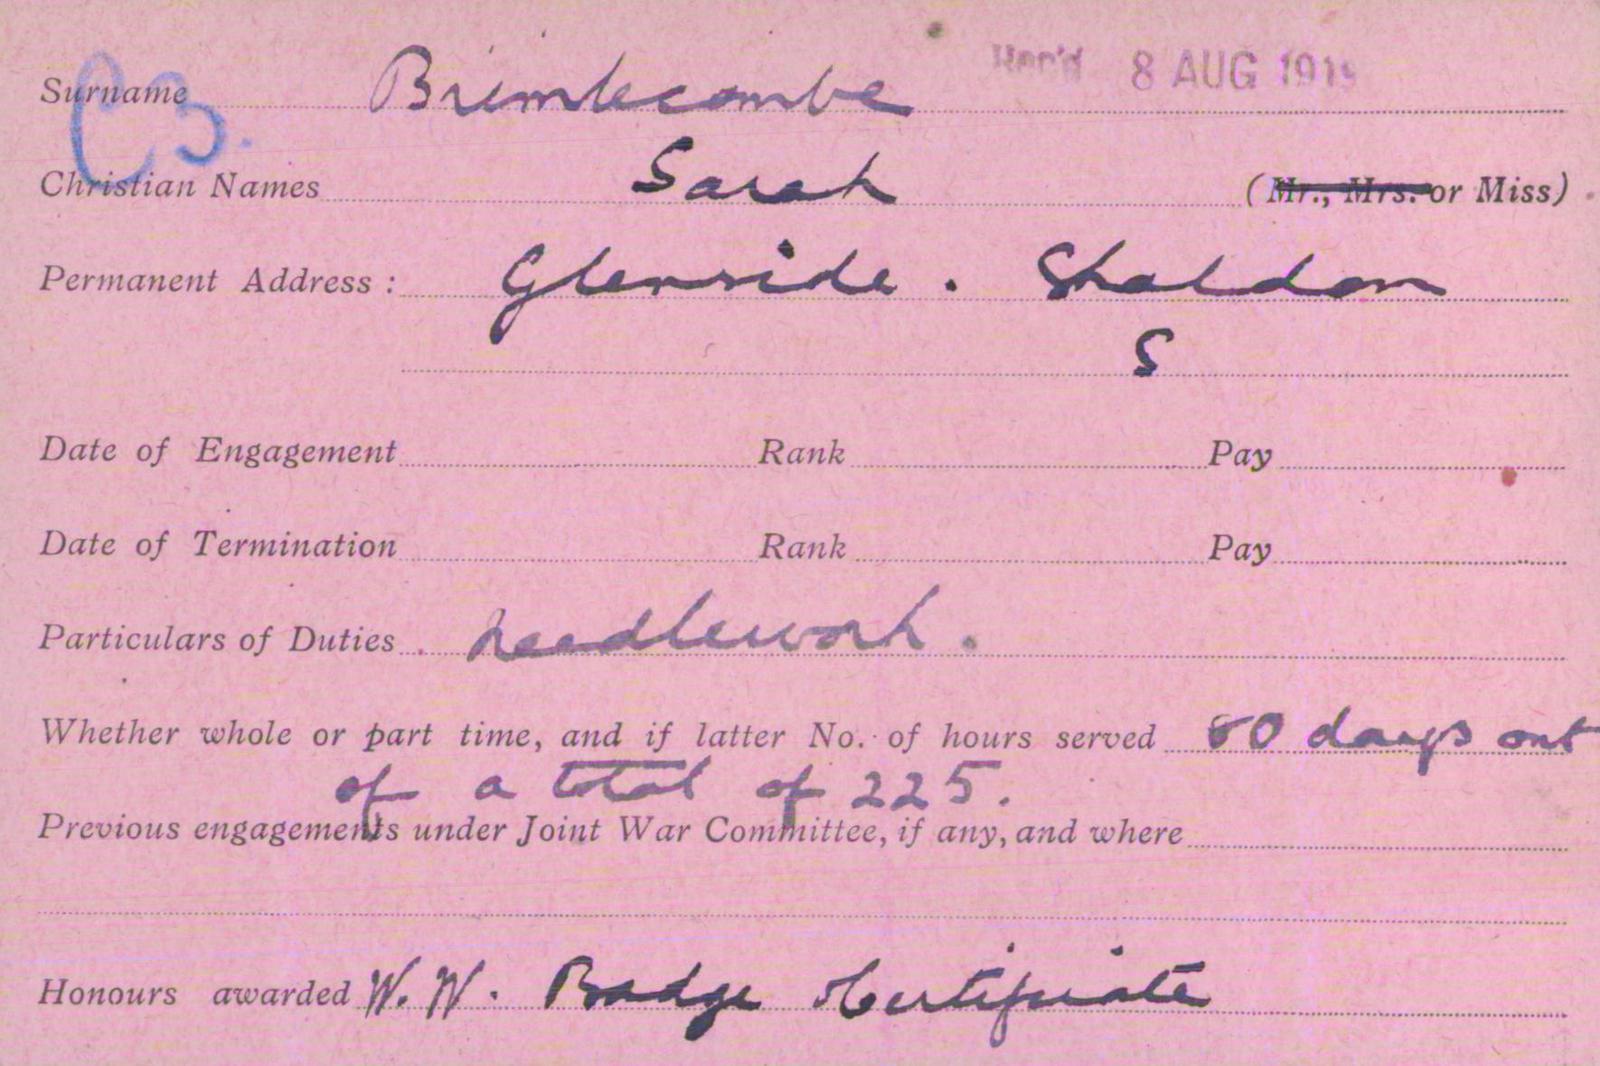 Rec'd 8 AUG 1919
Surname Brimlecombe
C3.
Christian Names Sarah (Mr., Mrs. or Miss)
Permanent Address : Glenside . Shaldon
S
Date of Engagement Rank Pay
Date of Termination Rank Pay
Particulars of Duties needlework .
Whether whole or part time, and if latter No. of hours served 80 days out
of a total of 225.
Previous engagements under Joint War Committee, if any, and where
Honours awarded W. W. Badge & Certificate